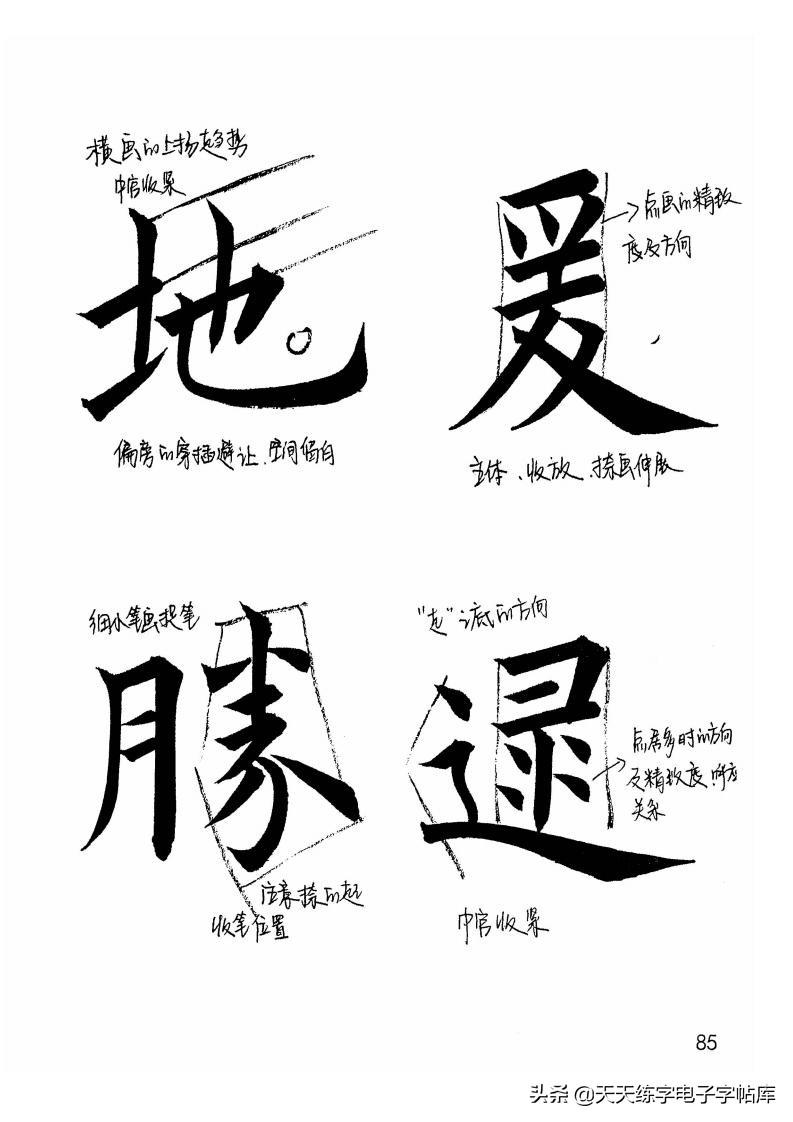 横画的上扬趋势
中宫收紧
地
偏旁的穿插避让、空间留白
点画的精致
度及方向
爰
立体、收放、捺画伸展
细小笔画提笔
勝
注意捺的起
收笔位置
“走”之底的方向
逯
点居多时的方向
及精致度、呼应
关系
中宫收紧
85
头条 @天天练字电子字帖库